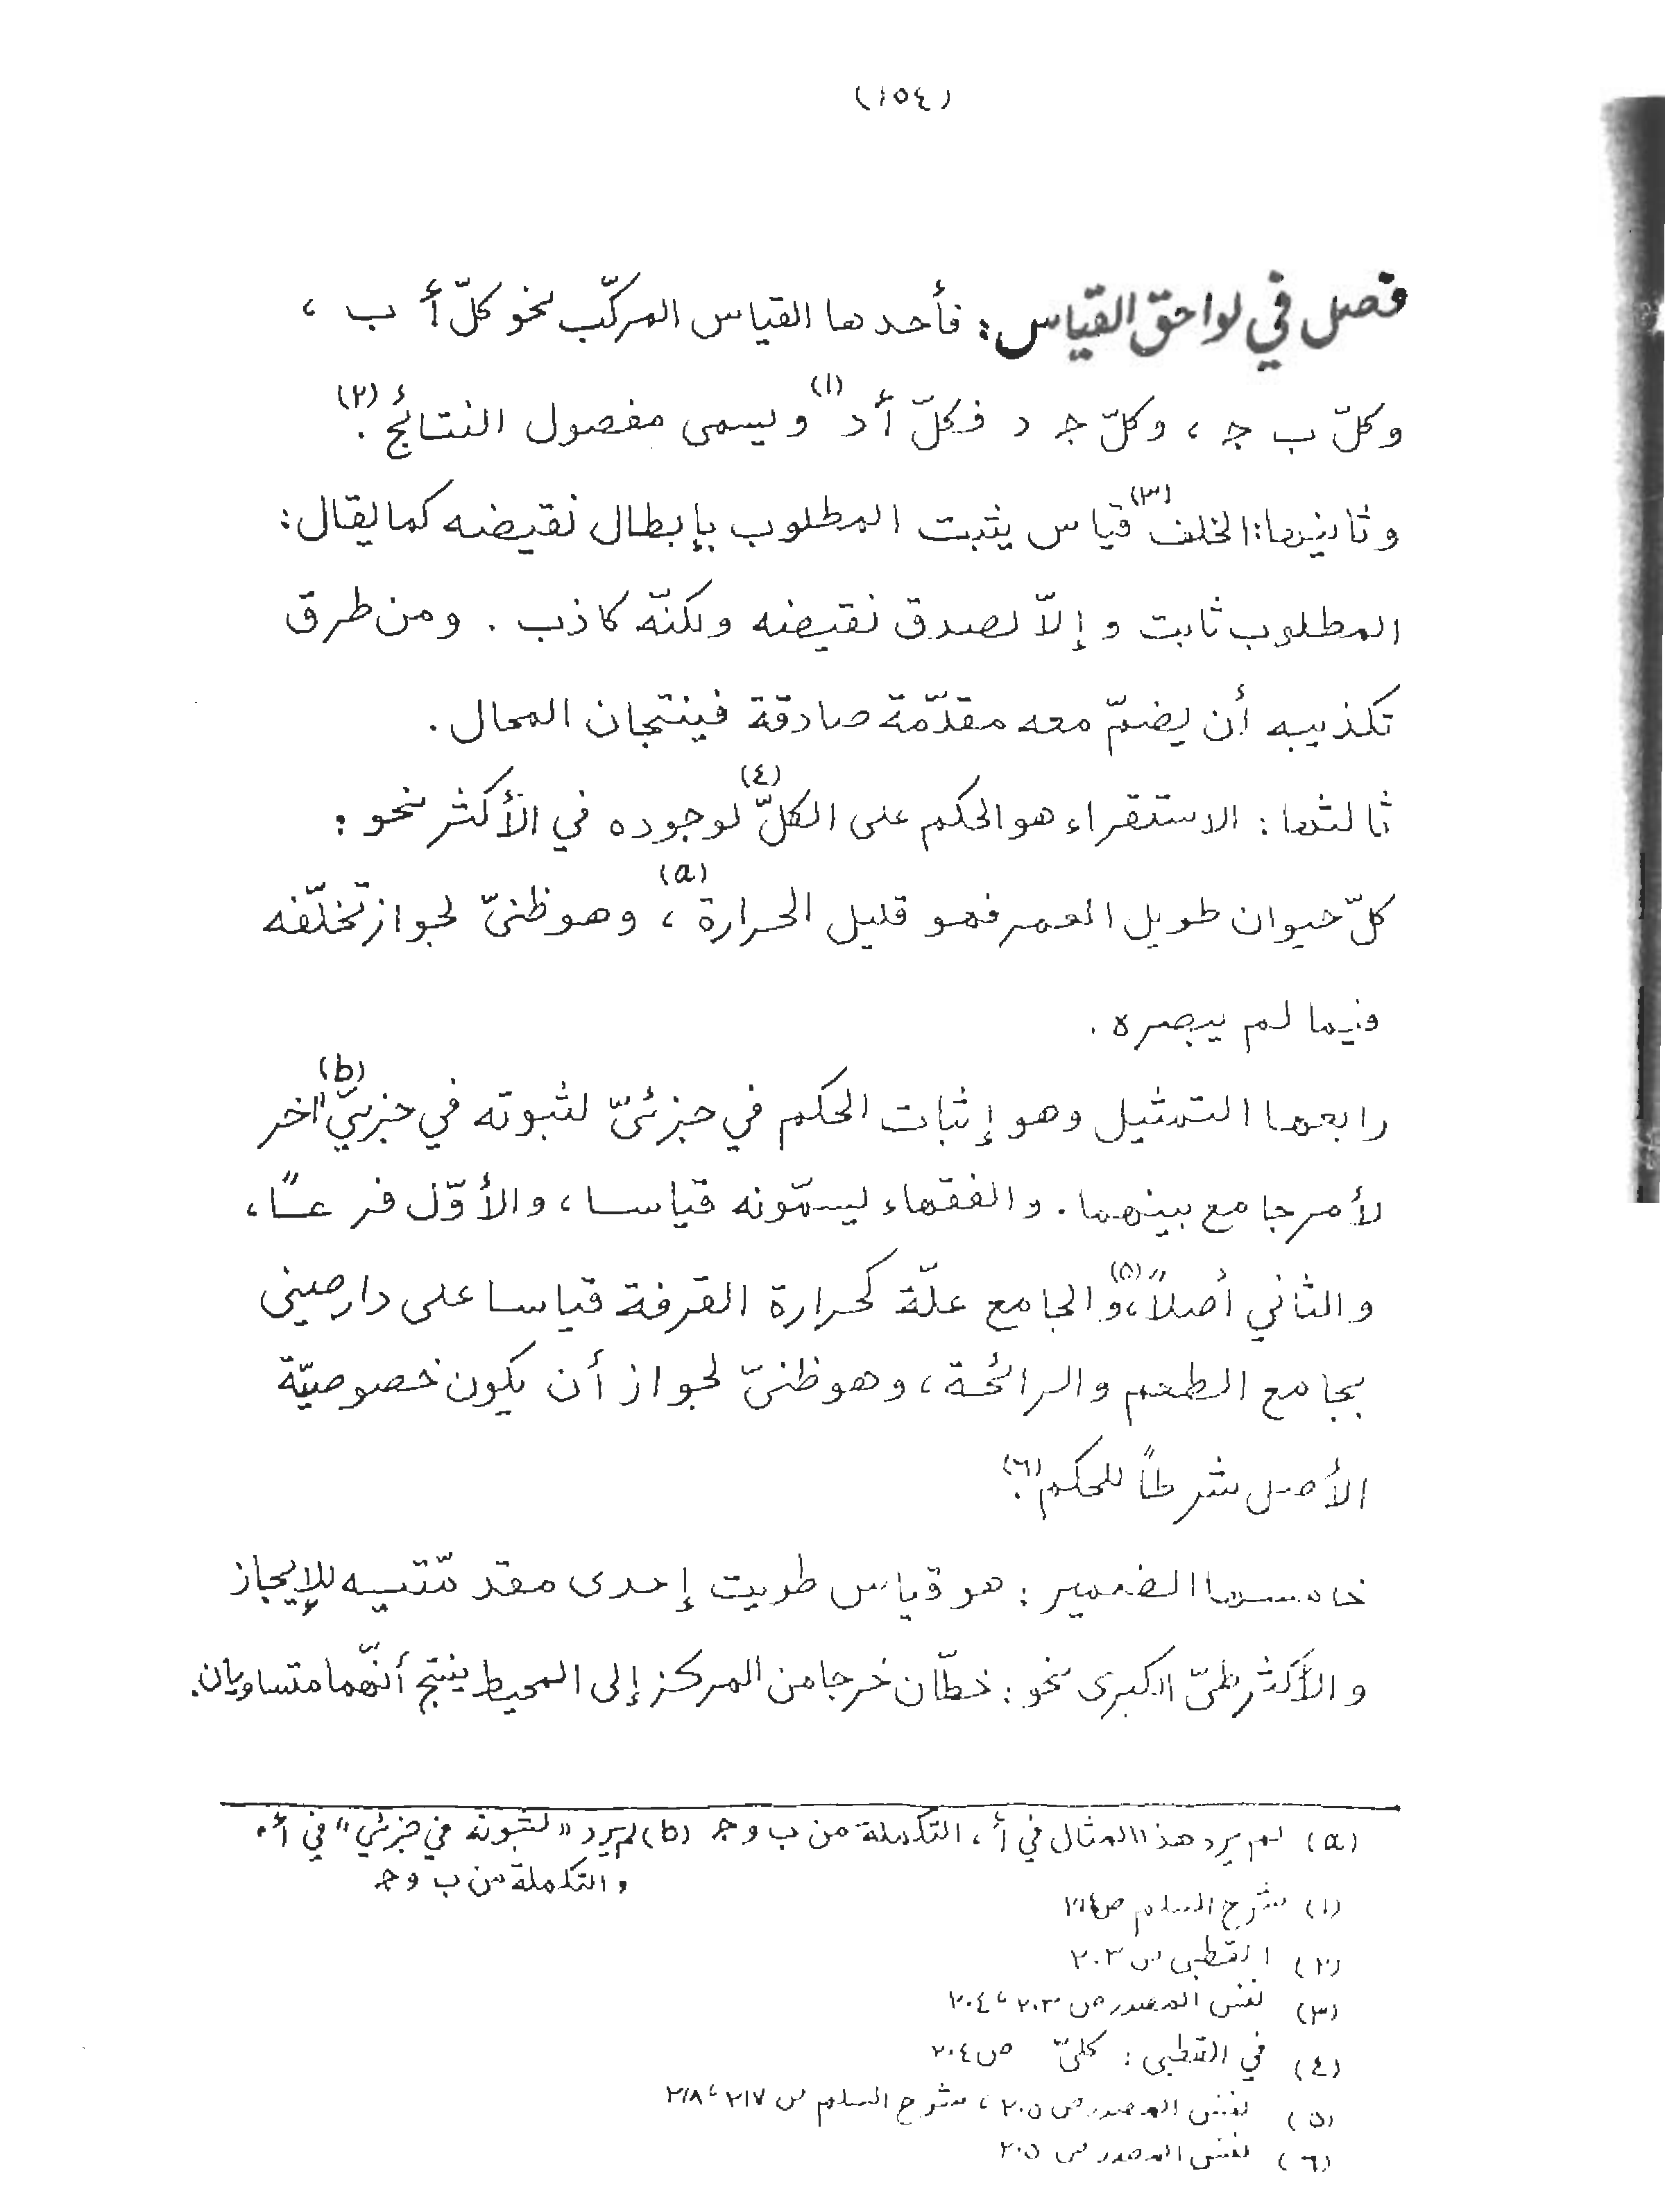 (١٥٤)
فصل في لواحق القياس: فأحدها القياس المركّب نحو كلّ أ ب ،
وكلّ ب جـ ، وكلّ جـ د فكلّ أ د (١) ويسمى مفصول النتائج (٢).
وثانيها: الخلف (٣) قياس يثبت المطلوب بإبطال نقيضه كما يقال:
المطلوب ثابت وإلاّ لصدق نقيضه ولكنّه كاذب . ومن طرق
تكذيبه أن يضمّ معه مقدّمة صادقة فينتجان المحال .
ثالثها: الاستقراء هو الحكم على الكلّ (٤) لوجوده في الأكثر نحو :
كلّ حيوان طويل العمر فهو قليل الحرارة (a) ، وهو ظنىّ لجواز تخلّفه
فيما لم يبصره .
رابعها التمثيل وهو إثبات الحكم في جزئىّ لثبوته في جزئيّ (b) اخر
لأمر جامع بينهما . والفقهاء يسمّونه قياسا ، والأوّل فرعًا ،
والثاني أصلاً (٥) ، والجامع علّة كحرارة القرفة قياسا على دارصينى
بجامع الطعم والرائحة ، وهو ظنىّ لجواز أن يكون خصوصيّة
الأصل شرطاً للحكم (٦).
خامسها الضمير : هو قياس طويت إحدى مقدّمتيه للإيجاز
والأكثر طىّ الكبرى نحو : خطّان خرجا من المركز إلى المحيط ينتج أنّهما متساويان.
(a) لم يرد هذا المثال في أ ، التكملة من ب و جـ (b) لم يرد "لثبوته في جزئي" في أ .
والتكملة من ب و جـ
(١) شرح السلم ص ٢١٤
(٢) القطبى ص ٢٠٣
(٣) نفس المصدر ص ٢٠٣ ، ٢٠٤
(٤) في القطبى : كلىّ ص ٢٠٤
(٥) نفس المصدر ص ٢٠٥ ، شرح السلم ص ٢١٧ ، ٢١٨
(٦) نفس المصدر ص ٢٠٥